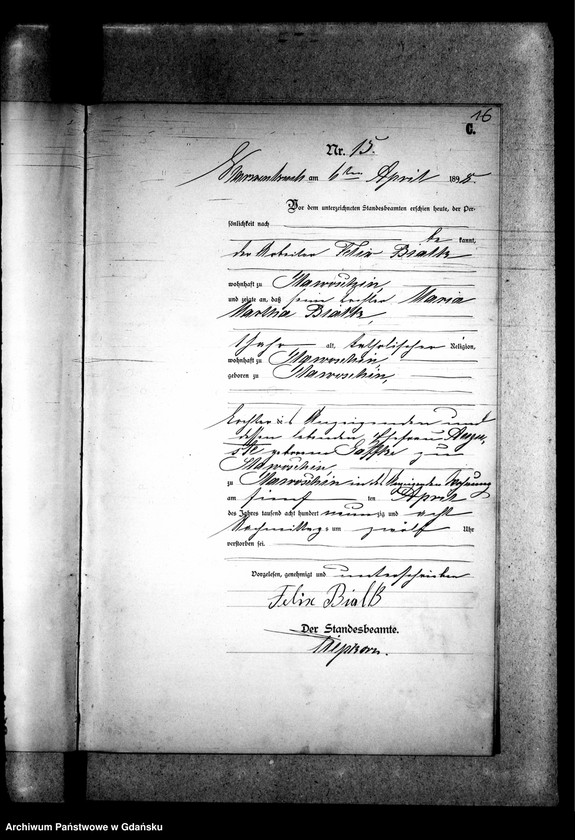 16
C.
Nr. 15.
am 6ten April 1898.
Vor dem unterzeichneten Standesbeamten erschien heute, der Per-
sönlichkeit nach
be kannt,
der Arbeiter Felix Bialk
wohnhaft zu
und zeigte an, daß seine Tochter Maria
Martha Bialk,
1 Jahr alt, katholischer Religion,
wohnhaft zu
geboren zu
Tochter des Anzeigenden und
dessen Ehefrau Augu-
ste geborene zu
zu in des Anzeigenden Wohnung
am fünf ten April
des Jahres tausend acht hundert neun zig und acht
Nachmittags um zwölf Uhr
verstorben sei.
Vorgelesen, genehmigt und unterschrieben
Felix Bialk
Der Standesbeamte.
Archiwum Państwowe w Gdańsku